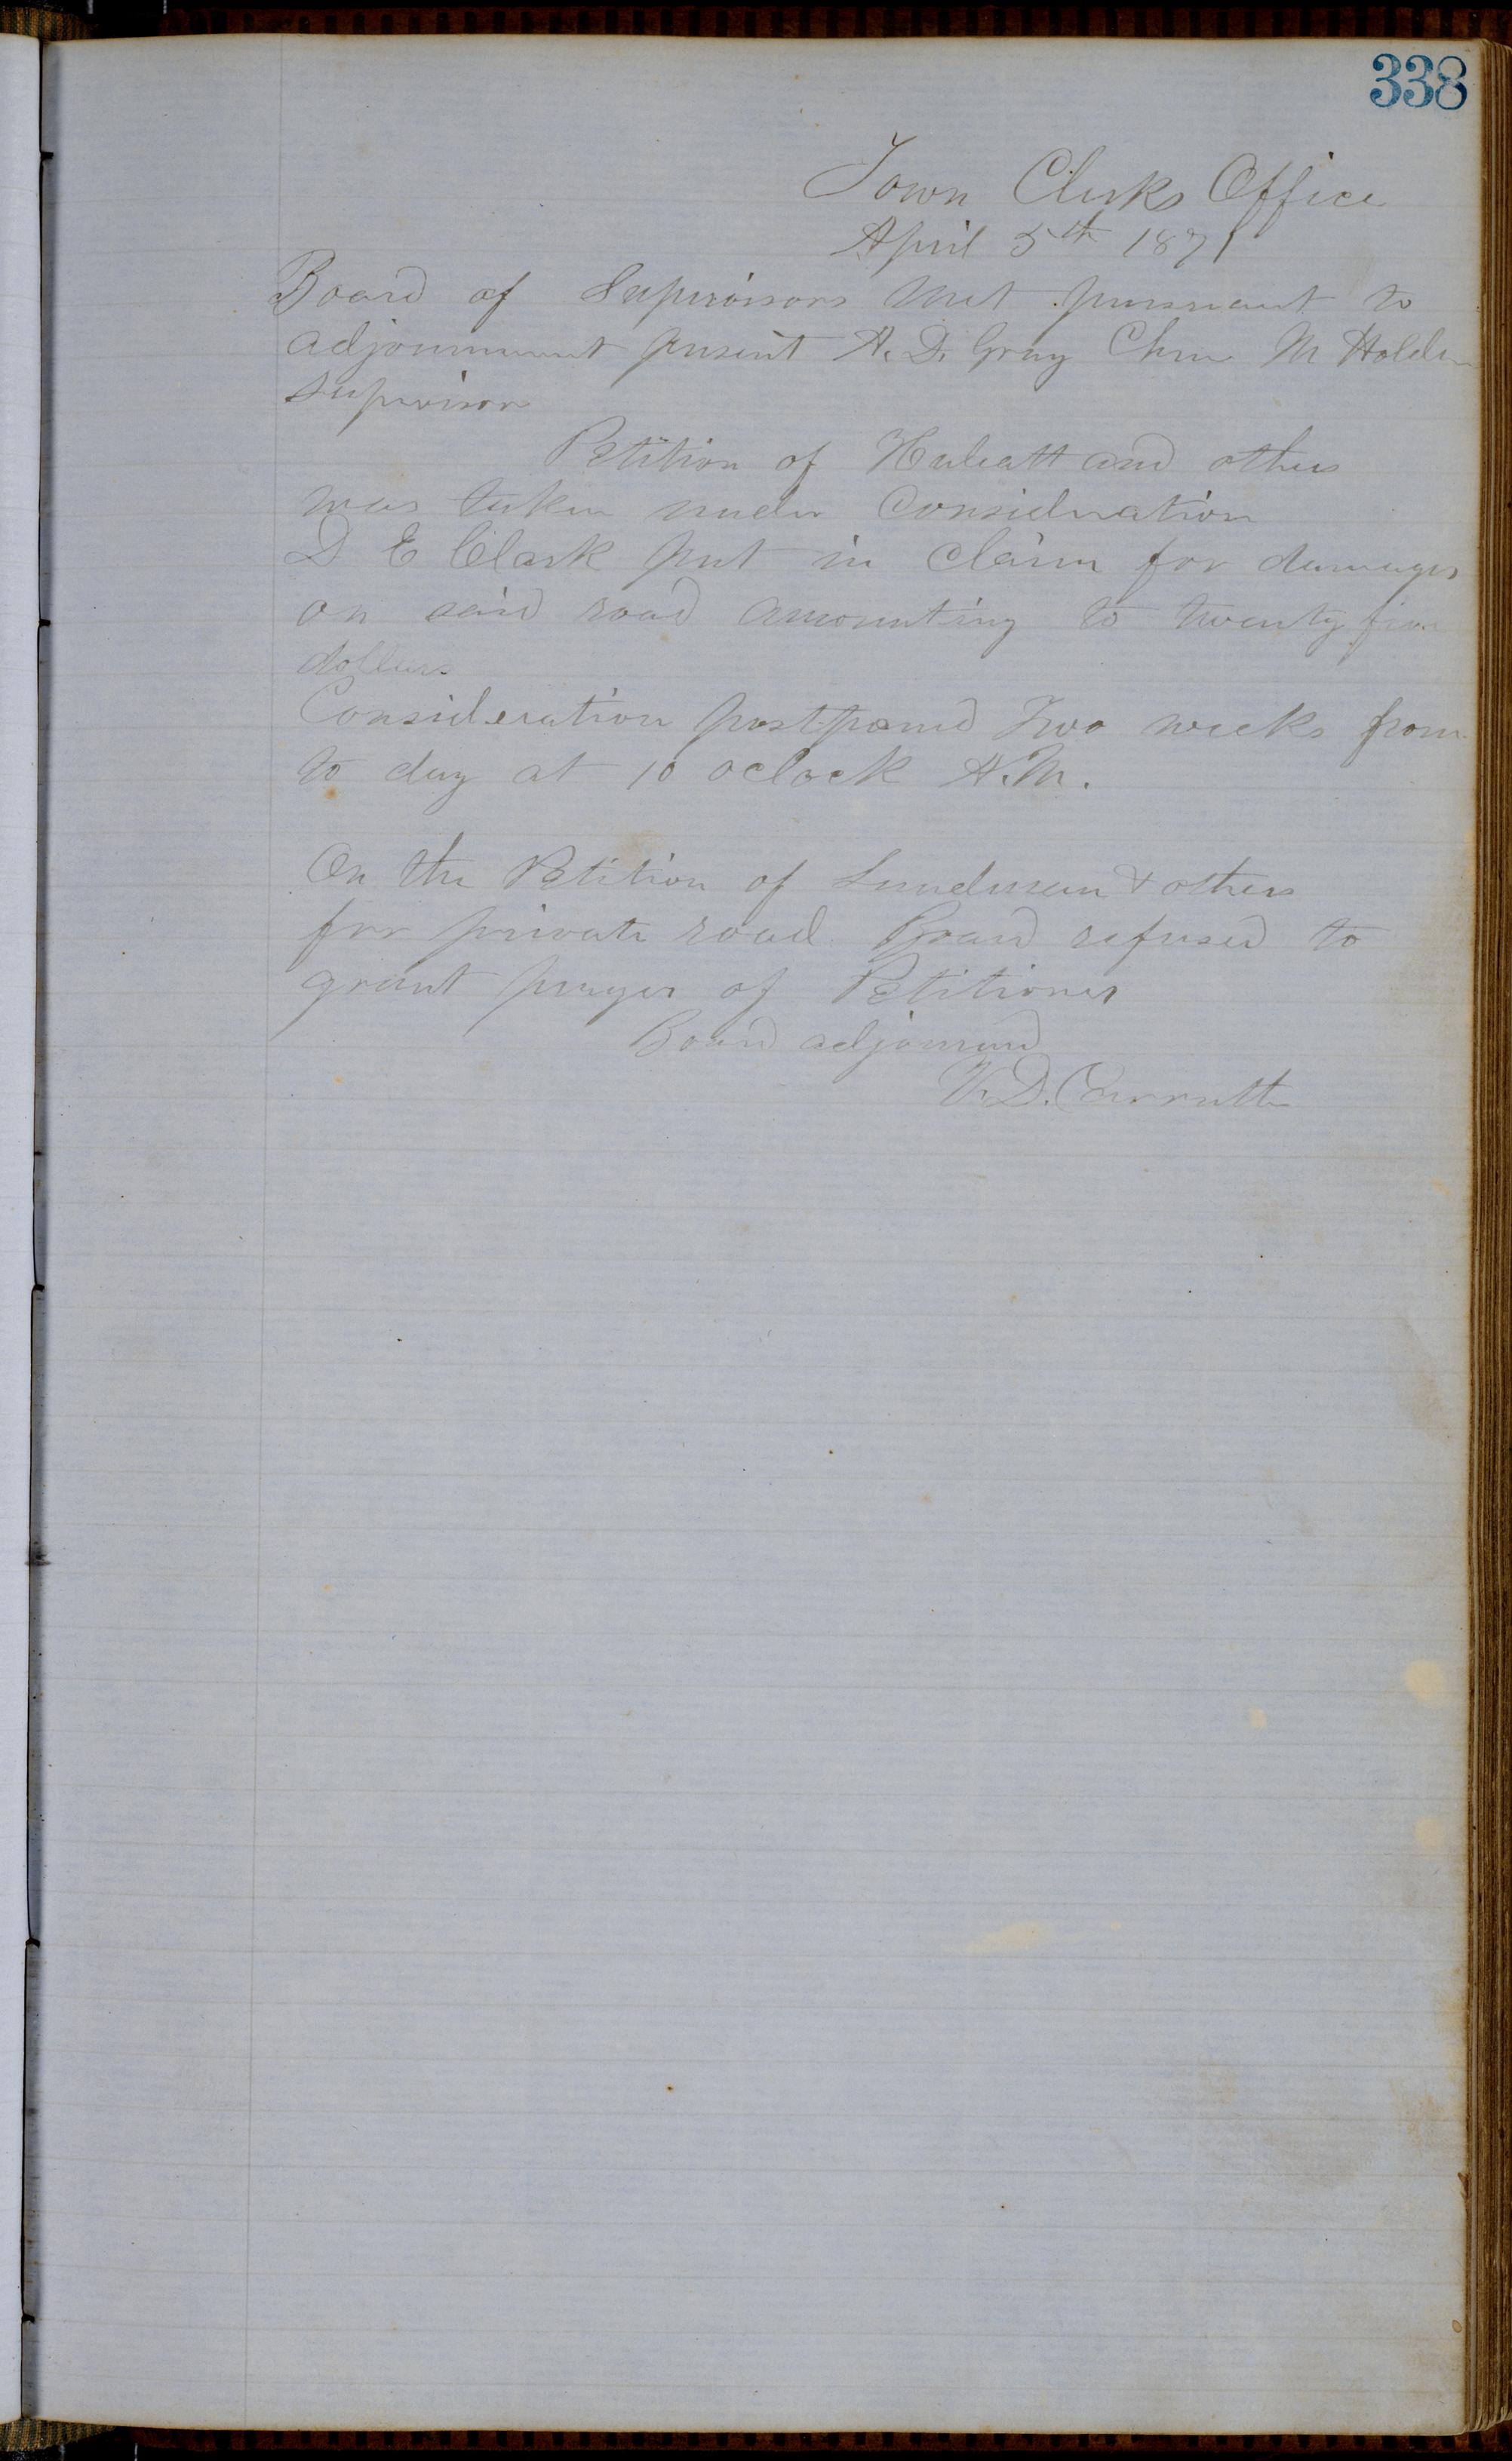 338
Town Clerks Office
April 5th 1871
Board of Supervisors met pursuant to
adjournment present A. D. Gray Chm M Holden
Supervisors
Petition of and others
was taken under Consideration
D E Clark put in claim for damages
on said road amounting to twenty five
dollars
Consideration postponed Two weeks from
to day at 10 oclock A.M.
On the Petition of & others
for private road Board refused to
grant prayer of Petitioners
Board adjourned
V. D. Carruth